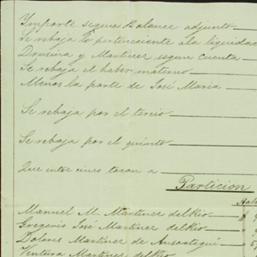 Importe segun Balance adjunto
Se rebaja lo perteneciente a la liquidac
Dromina y Martinez segun cuenta
Se rebaja el haber materno
Menos la parte de José Maria
Se rebaja por el tercio
Se rebaja por el quinto
Que entre cinco tocan a
Particion
Habe
Manuel M. Martinez del Rio
Gregorio José Martinez del Rio
Dolores Martinez de Ansoategui
Ventura Martinez del Rio